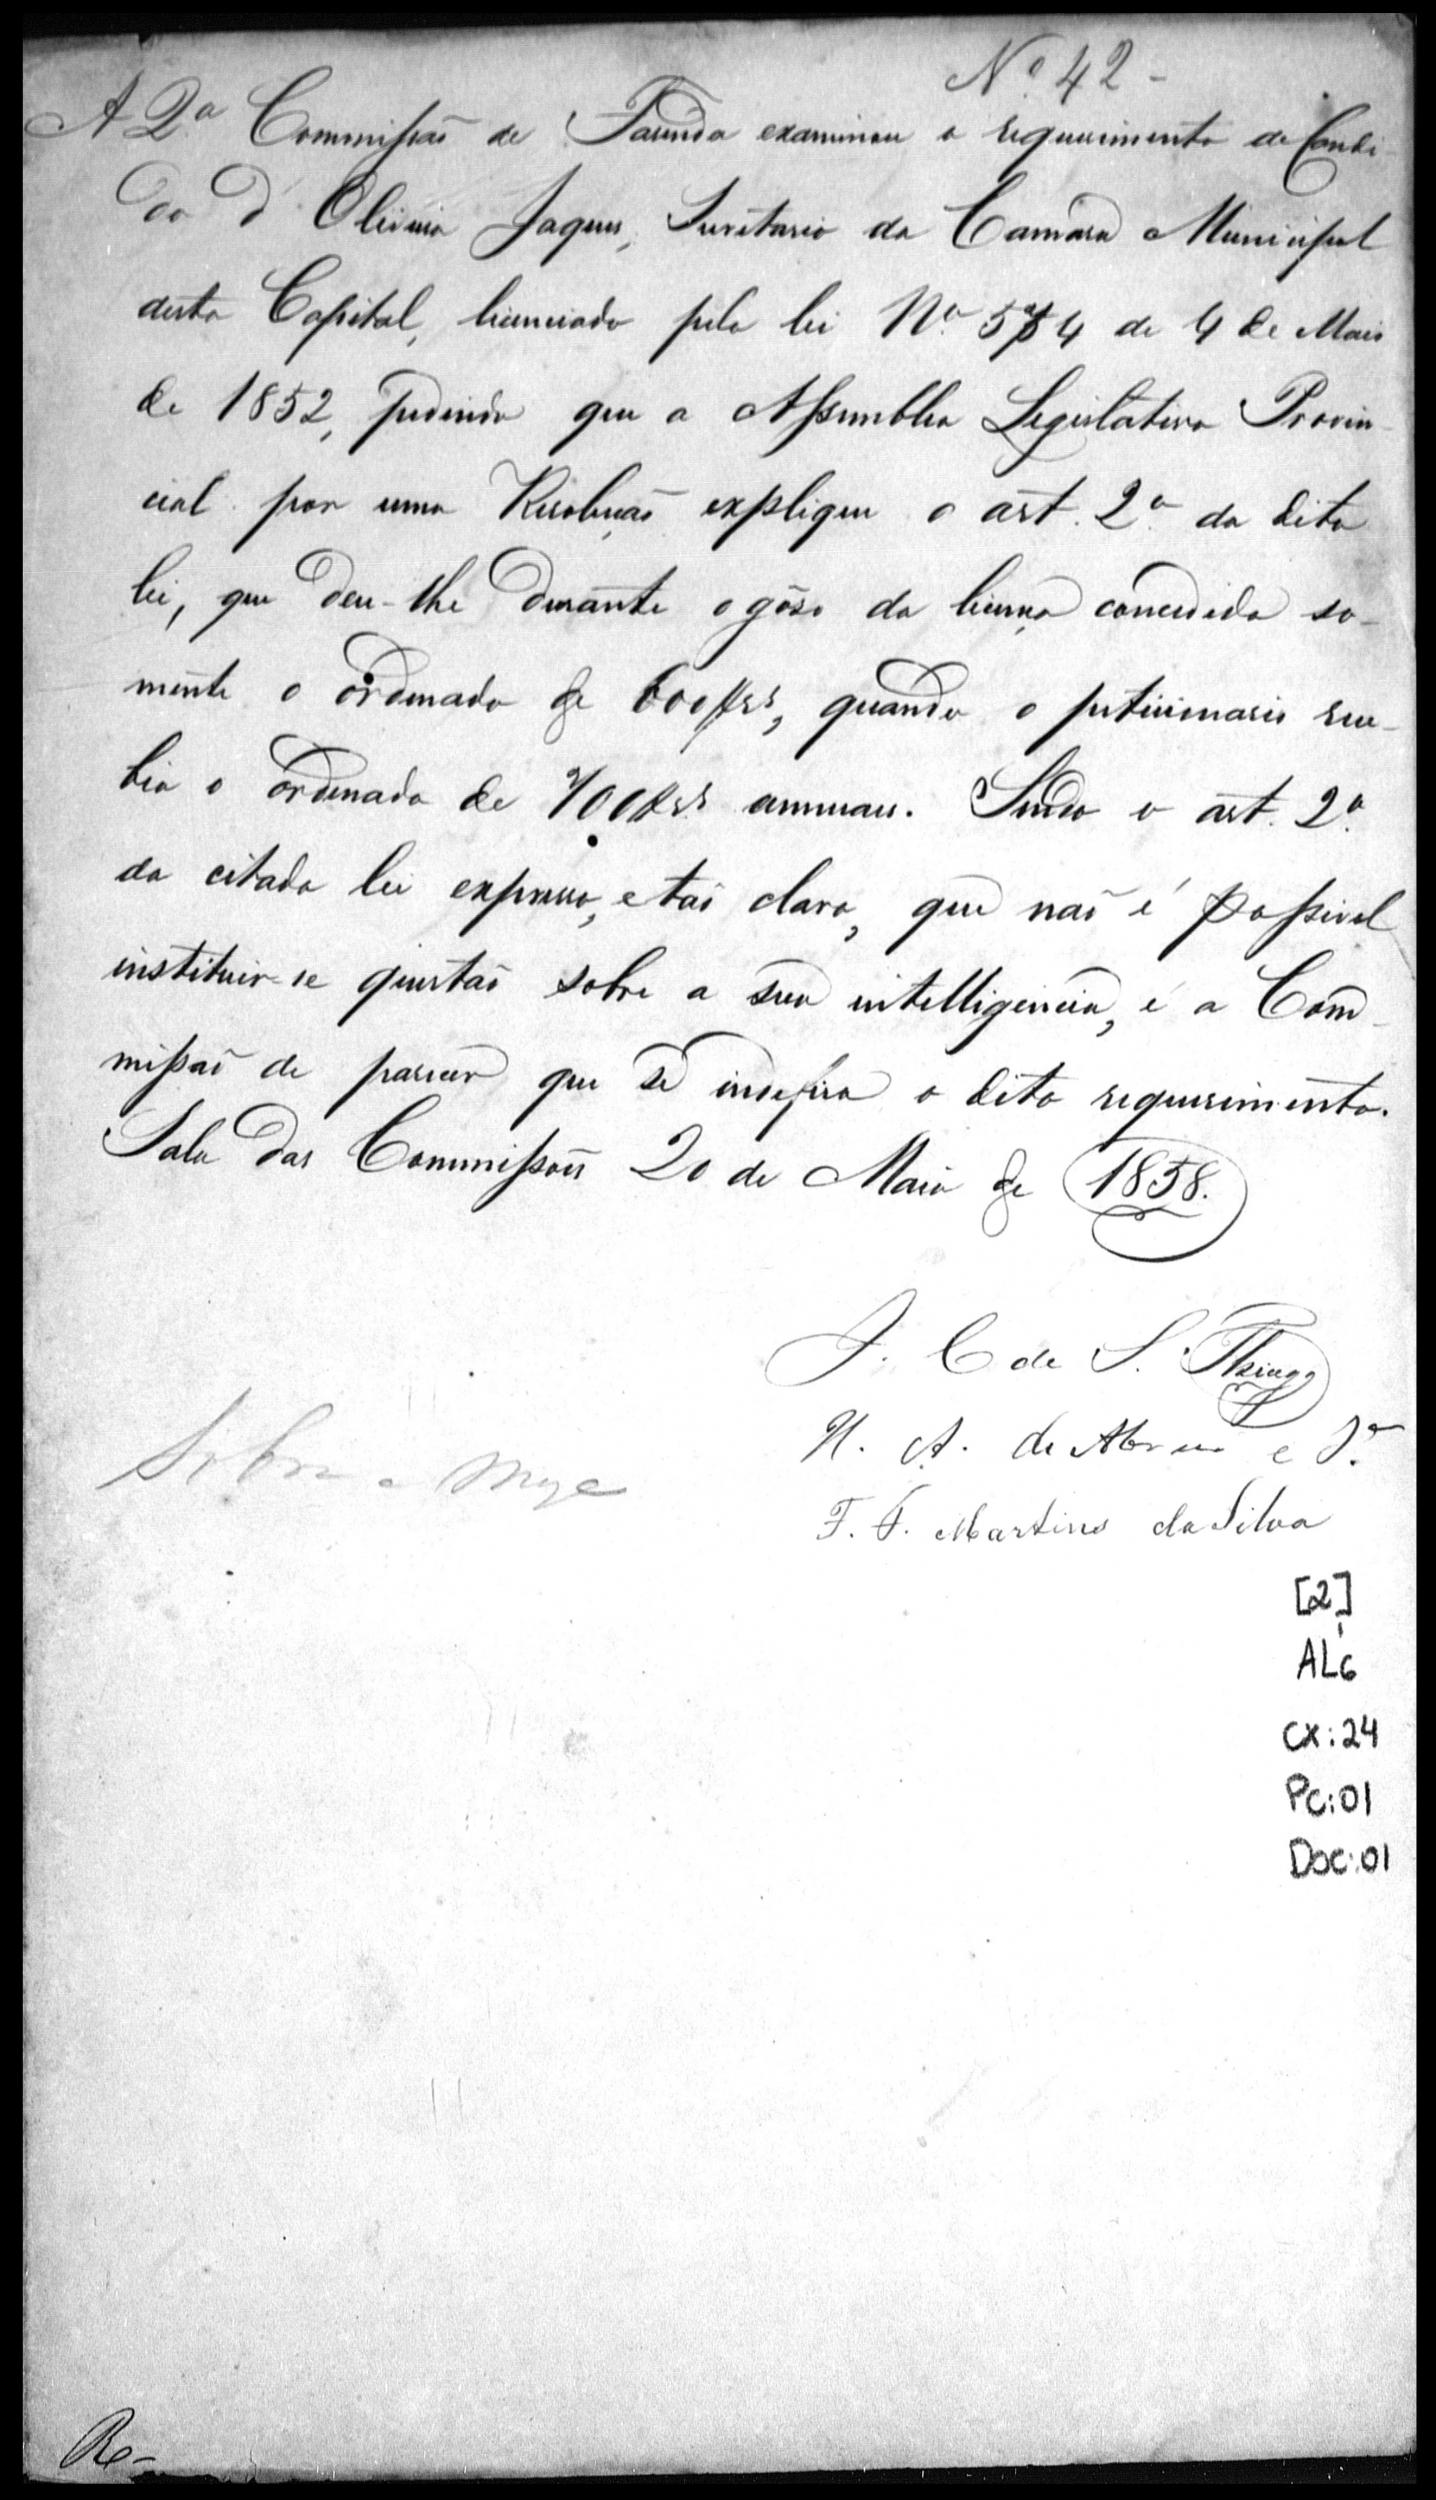 Nº 42 -
A 2ª Commissaõ de Fasenda examinou o requerimento de Candi-
do d'Oliveira Jaques, Secretario da Camara Municipal
desta Capital, licenciado pela lei Nº 554 de 4 de Maio
de 1852, pedindo que a Assemblea Legislativa Provin-
cial por uma Resoluçaõ explique o art. 2º da dita
lei, que deu-lhe durante o gôso da licença concedida so-
mente o ordenado de 600$rs, quando o peticionario rece-
bia o ordenado de 700$rs annuaes. Sendo o art. 2º
da citada lei expresso, e taõ claro, que naõ é possivel
instituir-se questaõ sobre a sua intelligencia, é a Com-
missaõ de parecer que se indefira o dito requerimento.
Sala das Commissoẽs 20 de Maio de 1858.
J. C de S. Thiago
N. A. de Abreu e Sª
F. F. Martins da Silva
Sobre a Meza
[2]
ALC
CX:24
Pc:01
Doc:01
Re-